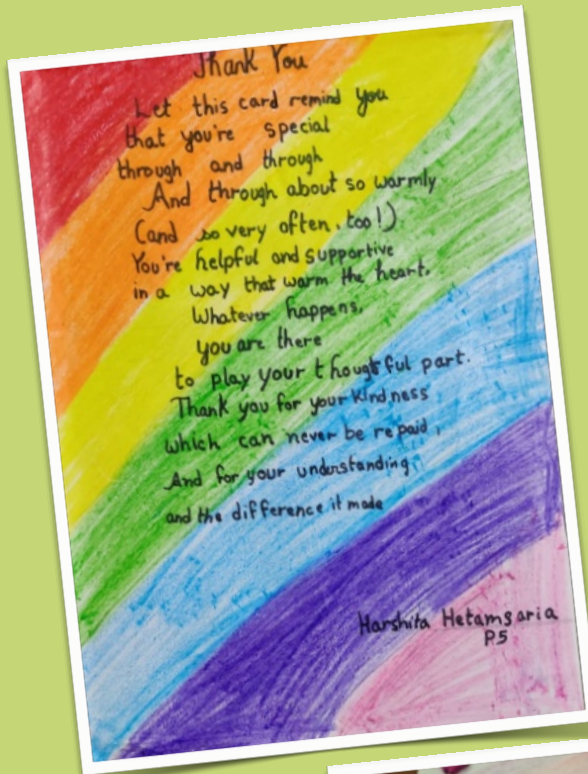 Thank You
Let this card remind you
that you're special
through and through
And through about so warmly
(and so very often, too!)
You're helpful and supportive
in a way that warm the heart.
Whatever happens,
you are there
to play your thoughtful part.
Thank you for your kindness
which can never be repaid,
And for your understanding,
and the difference it made
Harshita Hetamsaria
P.5